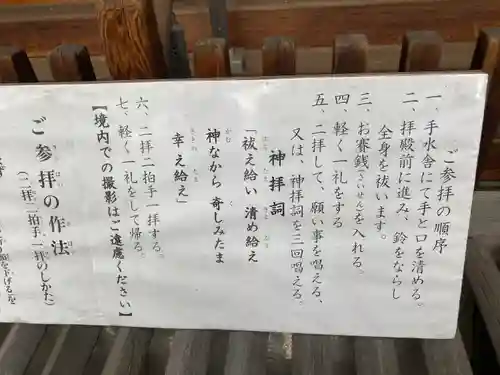 ご参拝の順序
一、手水舎にて手と口を清める。
二、拝殿前に進み、鈴をならし
全身を祓います。
三、お賽銭(さいせん)を入れる。
四、軽く一礼をする
五、二拝して、願い事を唱える、
又は、神拝詞を三回唱える。
神拝詞
「祓え給い 清め給え
神ながら 奇しみたま
幸え給え」
六、二拝二拍手一拝する。
七、軽く一礼をして帰る。
【境内での撮影はご遠慮ください】
ご参拝の作法
(二拝二拍手一拝のしかた)